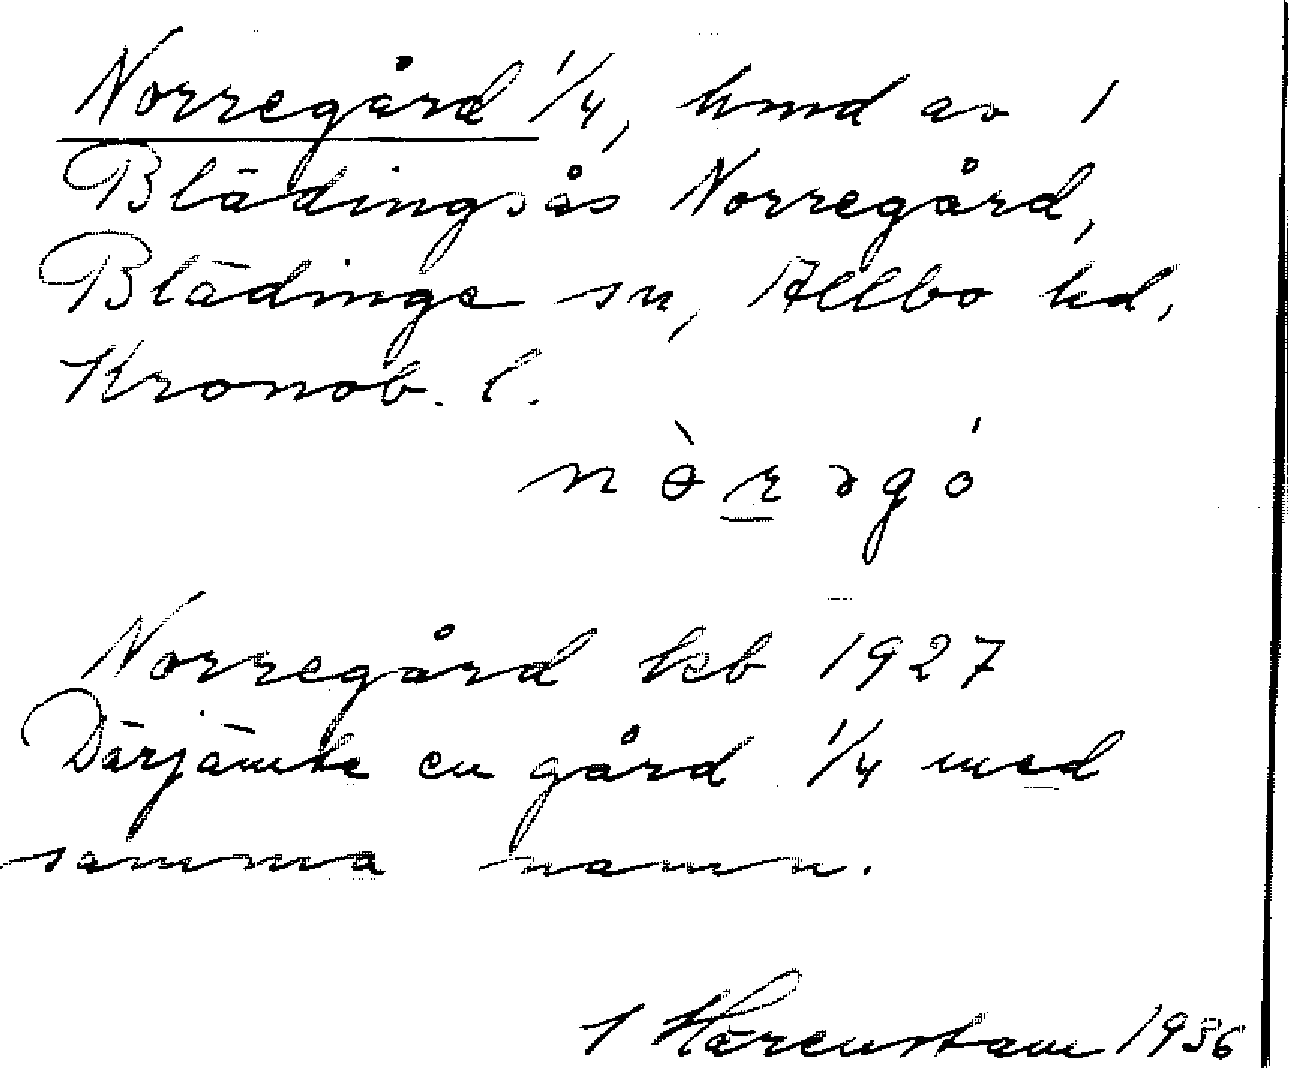 Norregård 1/4, hmd av 1
Blädingsås Norregård,
Blädinge sn, Allbo hd,
Kronob. l.
nɵ̀rəgó
Norregård kb 1927
Därjämte en gård 1/4 med
samma namn.
I Härenstam 1936